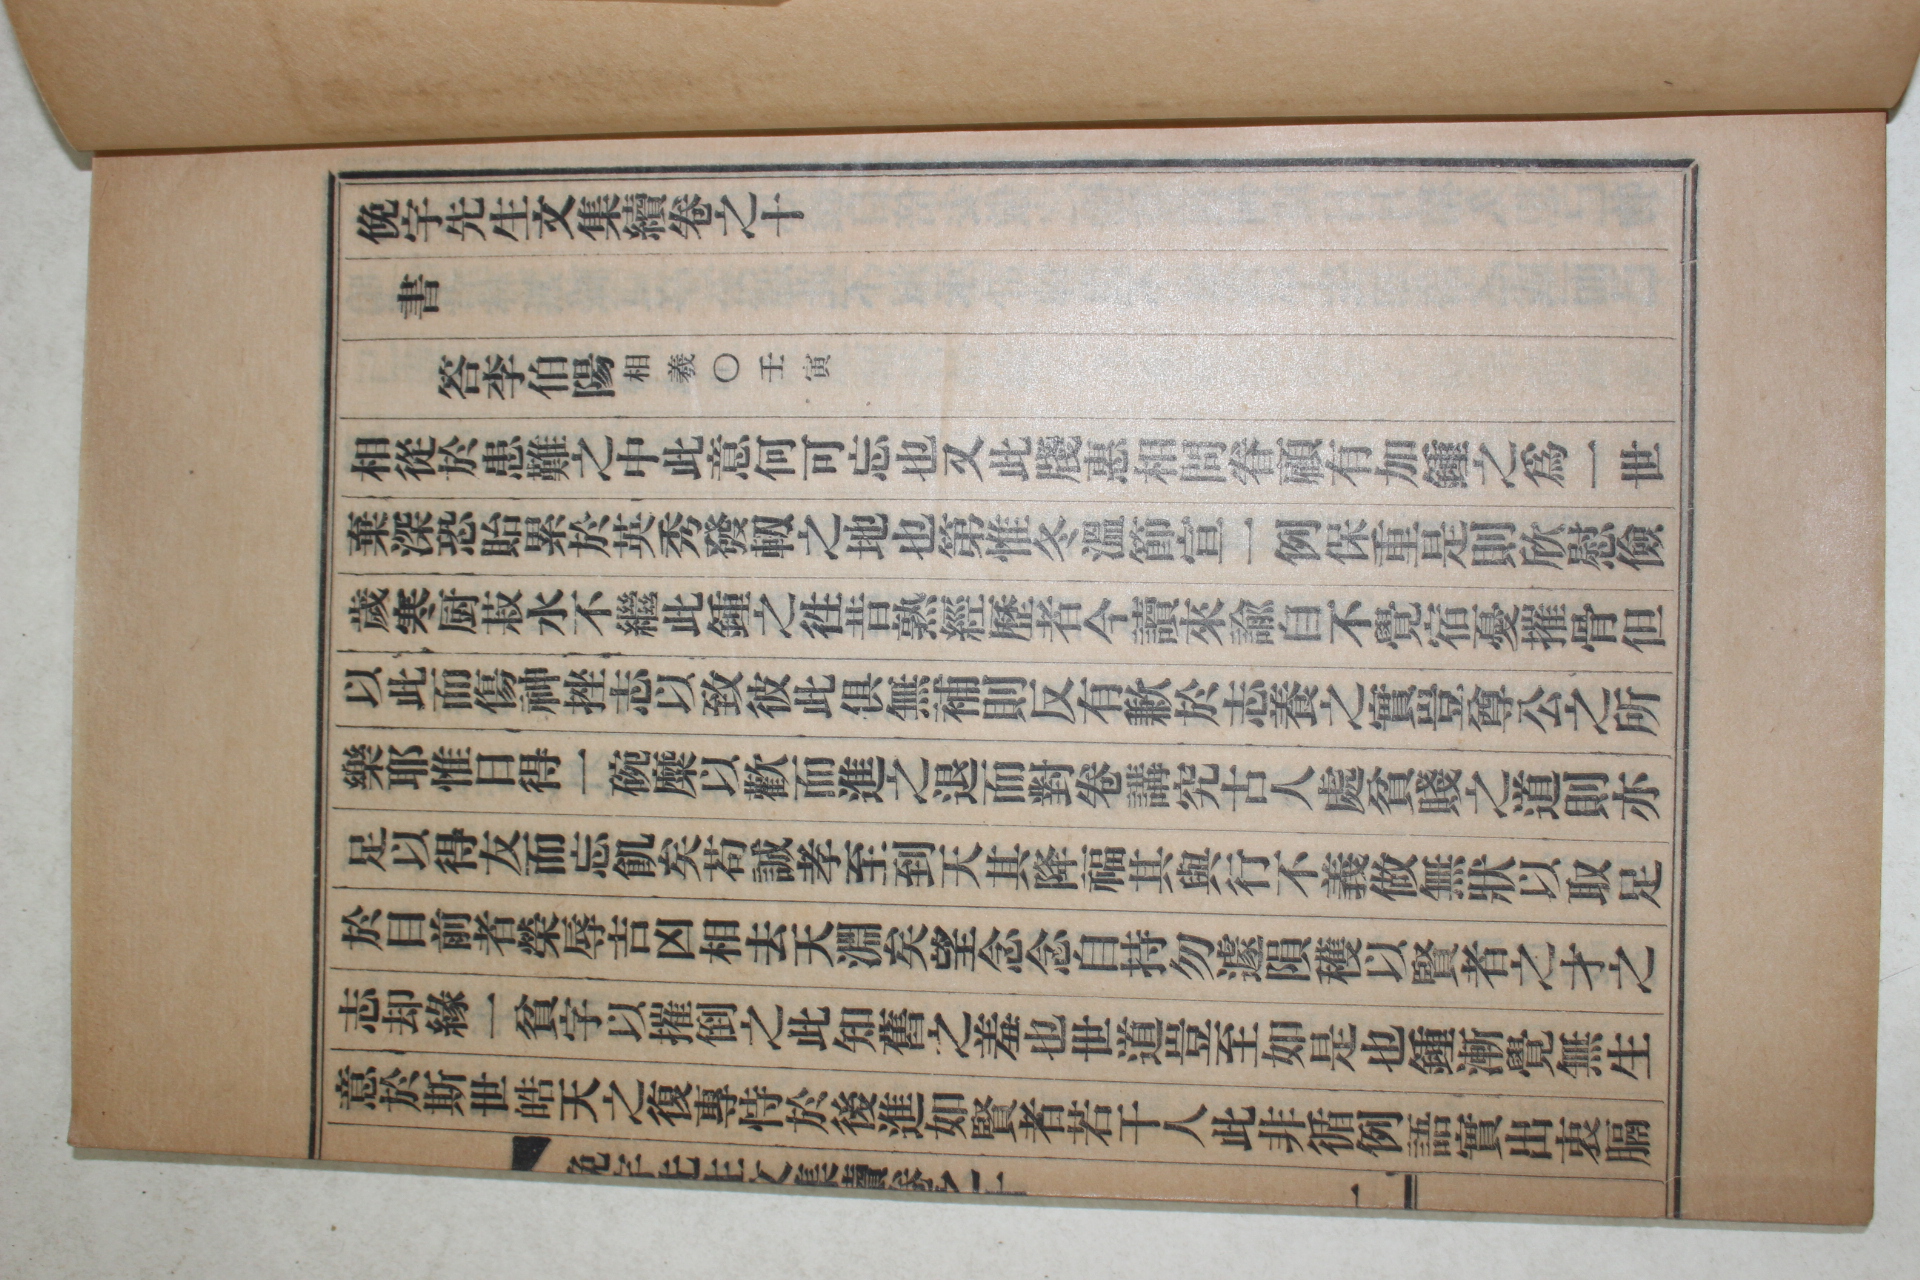 俛宇先生文集續卷之十
書
答李伯陽相羲〇壬寅
相從於患難之中此意何可忘也又此牋惠相問眷顧有加鍾之爲一世
棄深恐貽累於英秀發軔之地也第惟冬溫節宣一例保重是則欣慰儉
歲寒厨菽水不繼此鍾之徃昔熟經歷者今讀來諭自不覺宿憂摧骨但
以此而傷神挫志以致彼此俱無補則反有歉於志養之實豈尊公之所
樂耶惟日得一碗糜以歡而進之退而對卷講究古人處貧賤之道則亦
足以得友而忘飢矣苟誠孝至到天其降福其與行不義做無狀以取足
於目前者榮辱吉凶相去天淵矣望念念自持勿遽隕穫以賢者之才之
志却緣一貧字以摧倒之此知舊之羞也世道豈至如是也鍾漸覺無生
意於斯世皓天之復專恃於後進如賢者若干人此非循例語實出衷膈
俛宇先生文集續卷之十
一